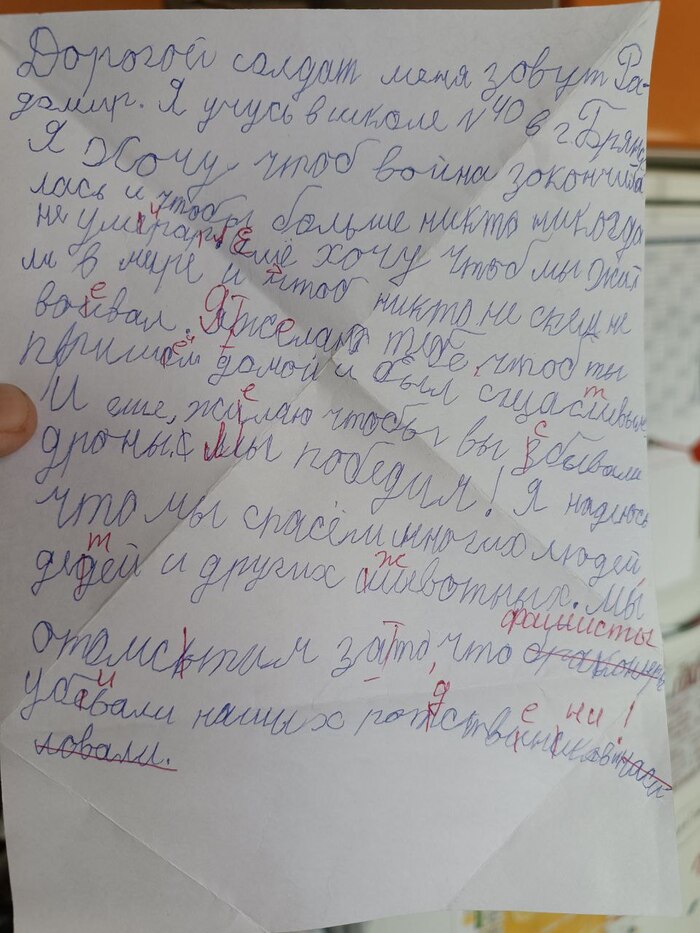 Дорогой солдат меня зовут Ра-
домир. Я учусь в школе №40 в г. Брянс
Я Хочу чтоб война закончива
лась и чтобы больше никто никогда
не умирал. Ещё хочу чтоб мы жил
и в мире и чтоб никто не с кем не
воевал. Я желаю тебе, чтоб ты
пришел домой и был сщастливым
И еще, желаю чтобы вы сбывали
дроны. Мы победим! Я надеюсь
что мы спасём многих людей
детей и других животных. Мы
фашисты
отомстим за то, что
убивали наших родственников!
ловали.